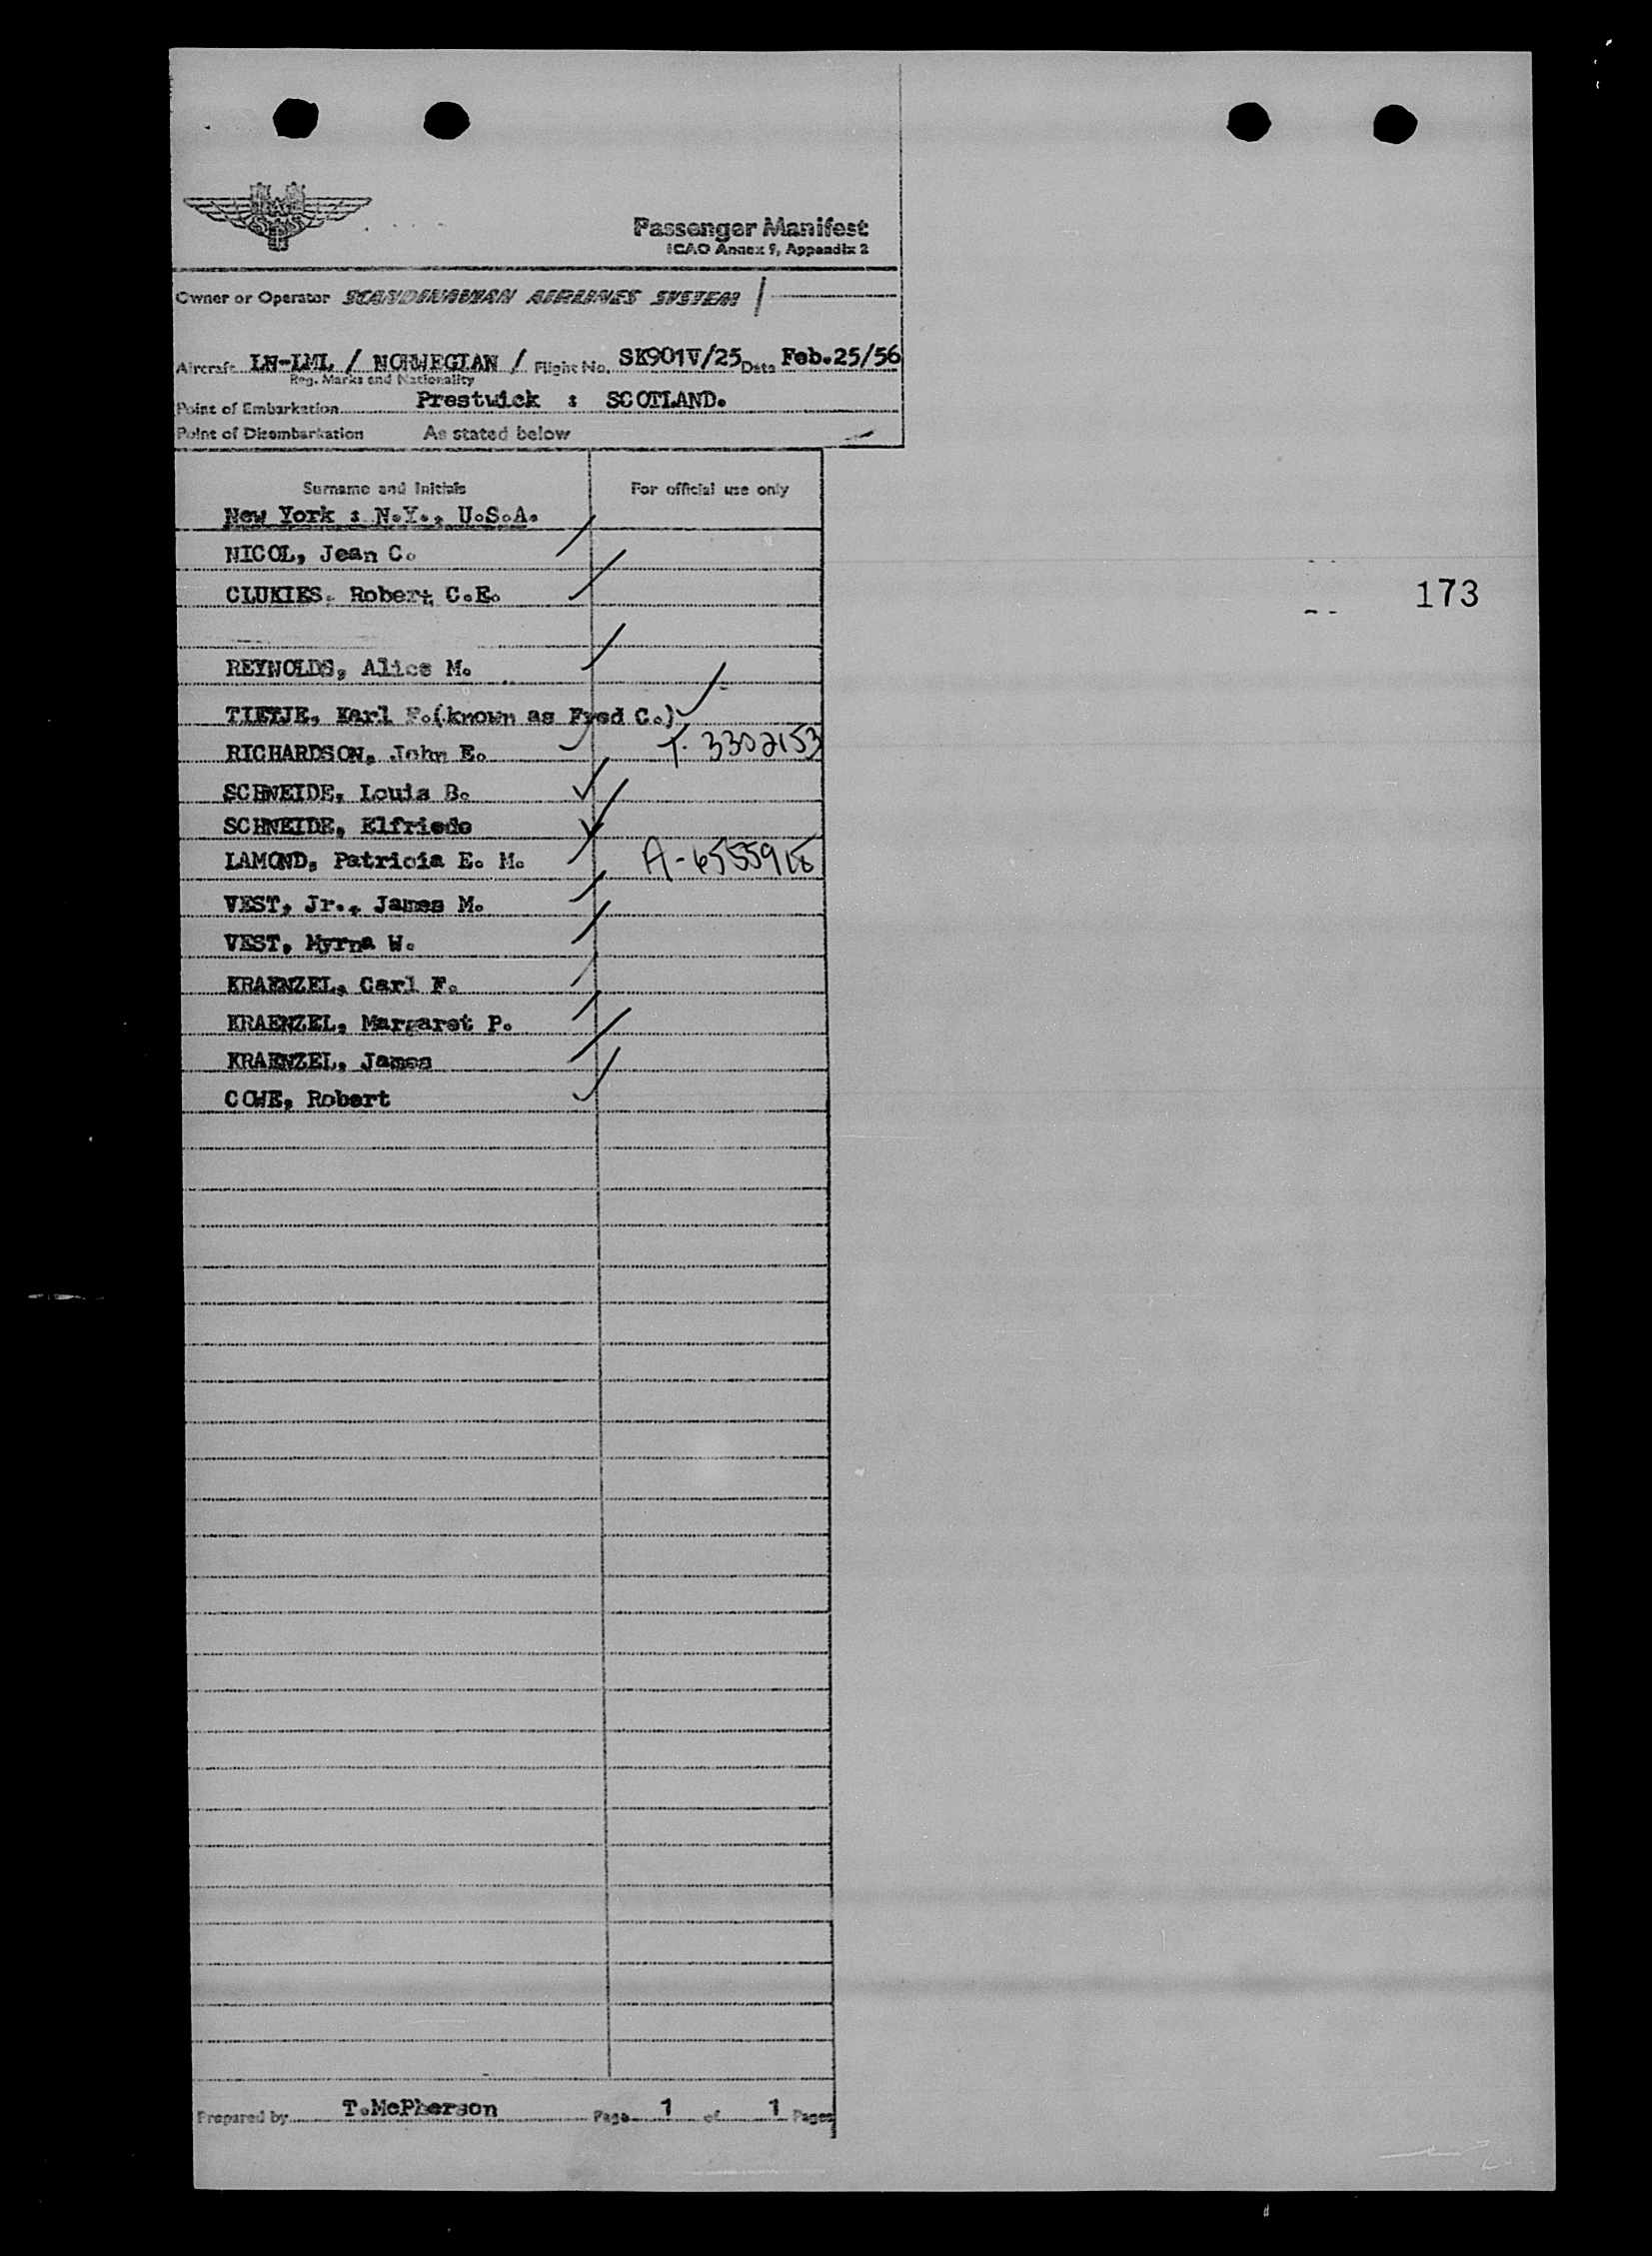 SAS
Passenger Manifest
ICAO Annex 9, Appendix 2
Owner or Operator SCANDINAVIAN AIRLINES SYSTEM /
Aircraft LN-LML / NORWEGIAN / Flight No. SK901V/25 Date Feb.25/56
Reg. Marks and Nationality
Point of Embarkation Prestwick : SCOTLAND.
Point of Disembarkation As stated below
Surname and Initials For official use only
New York : N.Y., U.S.A.
NICOL, Jean C.
CLUKIES. Robert C.E.
173
REYNOLDS, Alice M.
TIETJE, Karl F.(known as Fred C.)
RICHARDSON, John E. T- 3302153
SCHNEIDE, Louis B.
SCHNEIDE, Elfriede
LAMOND, Patricia E. M. A-
VEST, Jr., James M.
VEST, Myrna W.
KRAENZEL, Carl F.
KRAENZEL, Margaret P.
KRAENZEL, James
COWE, Robert
Prepared by T.McPherson Page 1 of 1 Pages